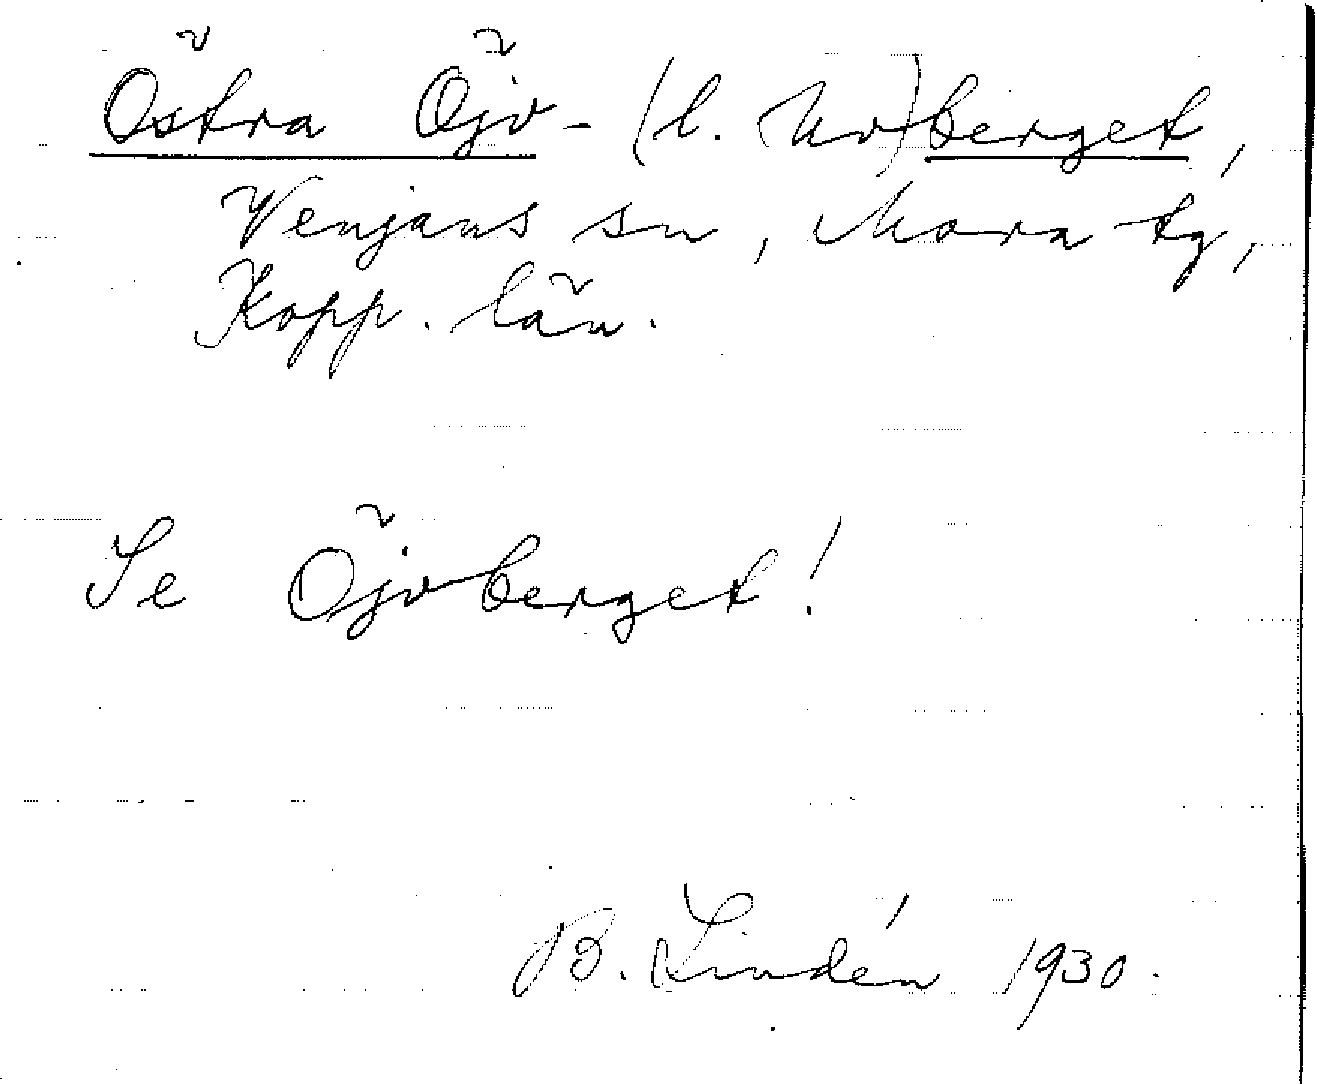 Östra Öjv- (l. Uv)berget,
Venjans sn, Mora tg,
Kopp. län.
Se Öjvberget!
B. Lindén 1930.